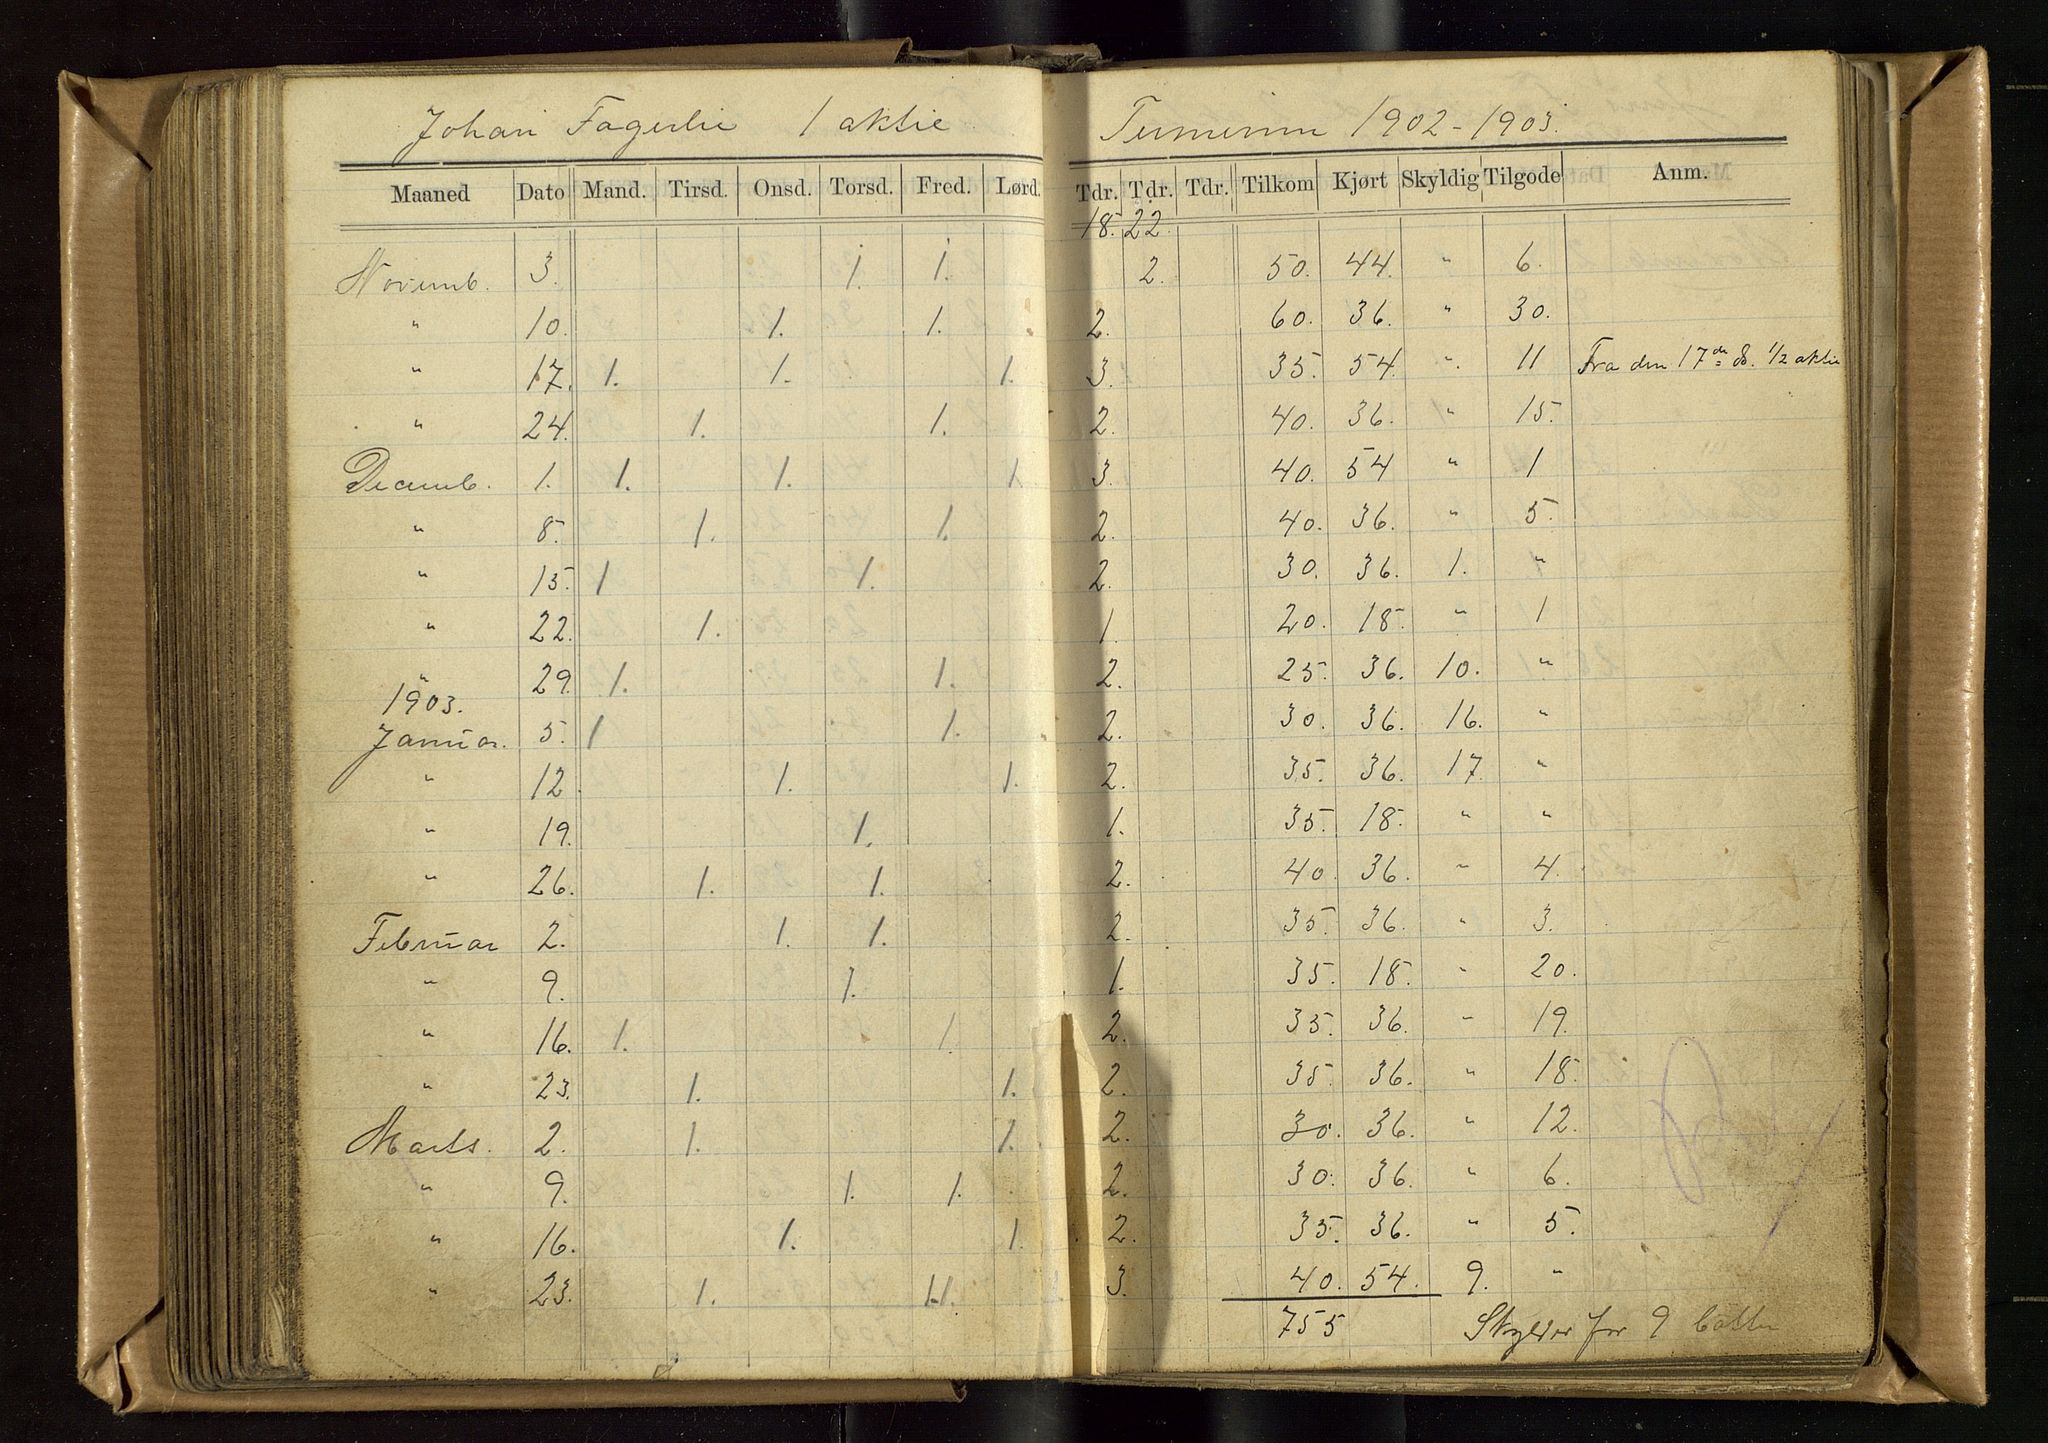 Johan Fagerlie 1 aktie Terminen 1902-1903.
Maaned Dato Mand. Tirsd. Onsd. Torsd. Fred. Lørd. Tdr. Tdr. Tdr. Tilkom Kjørt Skyldig Tilgode Anm.
18. 22.
Novemb. 3. 1. 1. 2. 50. 44. " 6.
" 10. 1. 1. 2. 60. 36. " 30.
" 17. 1. 1. 1. 3. 35. 54. " 11 Fra den 17de ds. 1/2 aktie
" 24. 1. 1. 2. 40. 36. " 15.
Decemb. 1. 1. 1. 1. 3. 40. 54 " 1
" 8. 1. 1. 2. 40. 36. " 5.
" 15. 1 1. 2. 30. 36. 1. "
" 22. 1. 1. 20. 18. " 1
" 29. 1. 1. 2. 25. 36. 10. "
1903.
Januar. 5. 1 1. 2. 30. 36. 16. "
" 12 1. 1. 2. 35. 36. 17. "
" 19. 1. 1. 35. 18. " "
" 26. 1. 1. 2. 40. 36. " 4.
Februar 2. 1. 1. 2. 35. 36. " 3.
" 9. 1. 1. 35. 18. " 20.
" 16. 1. 1. 2. 35. 36. " 19.
" 23. 1. 1. 2. 35. 36. " 18.
Marts. 2. 1. 1. 2. 30. 36. " 12.
" 9. 1. 1. 2. 30. 36. " 6.
" 16. 1. 1. 2. 35. 36. " 5.
" 23. 1. 1.1. 3. 40. 54. 9. "
755 Skylder for 9 Bøtter